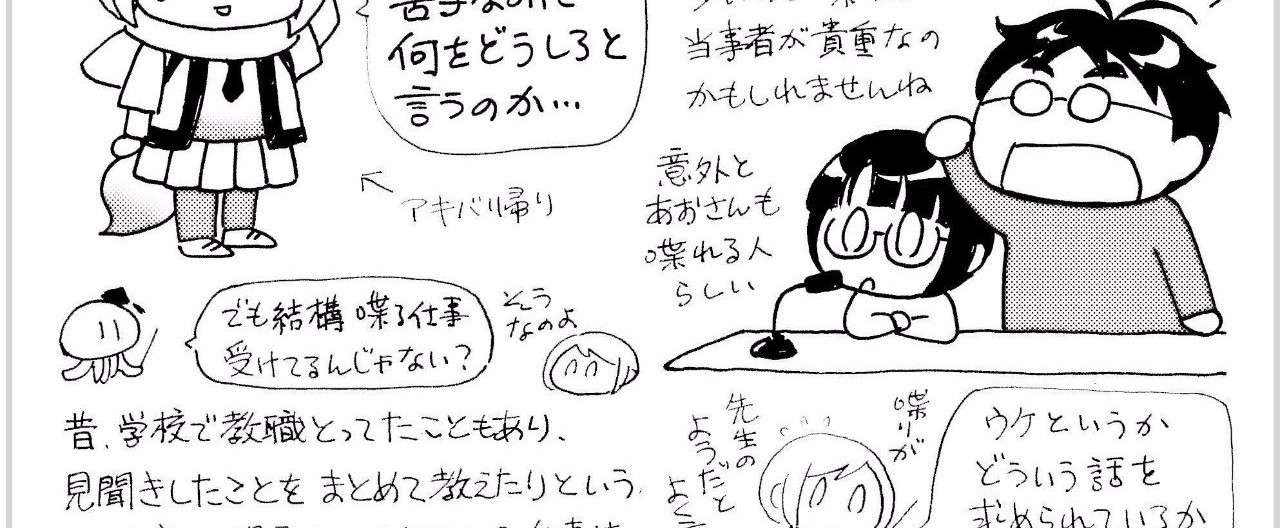 何をどうしろと
言うのか…
当事者が貴重なの
かもしれませんね
アキバ帰り
意外と
あおさんも
喋れる人
らしい
でも結構喋る仕事
受けてるんじゃない?
そう
なのよ
昔、学校で教職とってたこともあり、
見聞きしたことをまとめて教えたりという
喋りが
先生の
ようだと
よく
ウケというか
どういう話を
求められているか